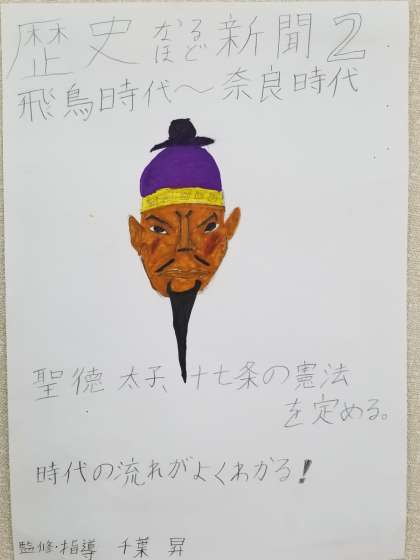 歴史なるほど新聞2
飛鳥時代～奈良時代
聖徳太子、十七条の憲法
を定める。
時代の流れがよくわかる!
監修・指導 千葉 昇